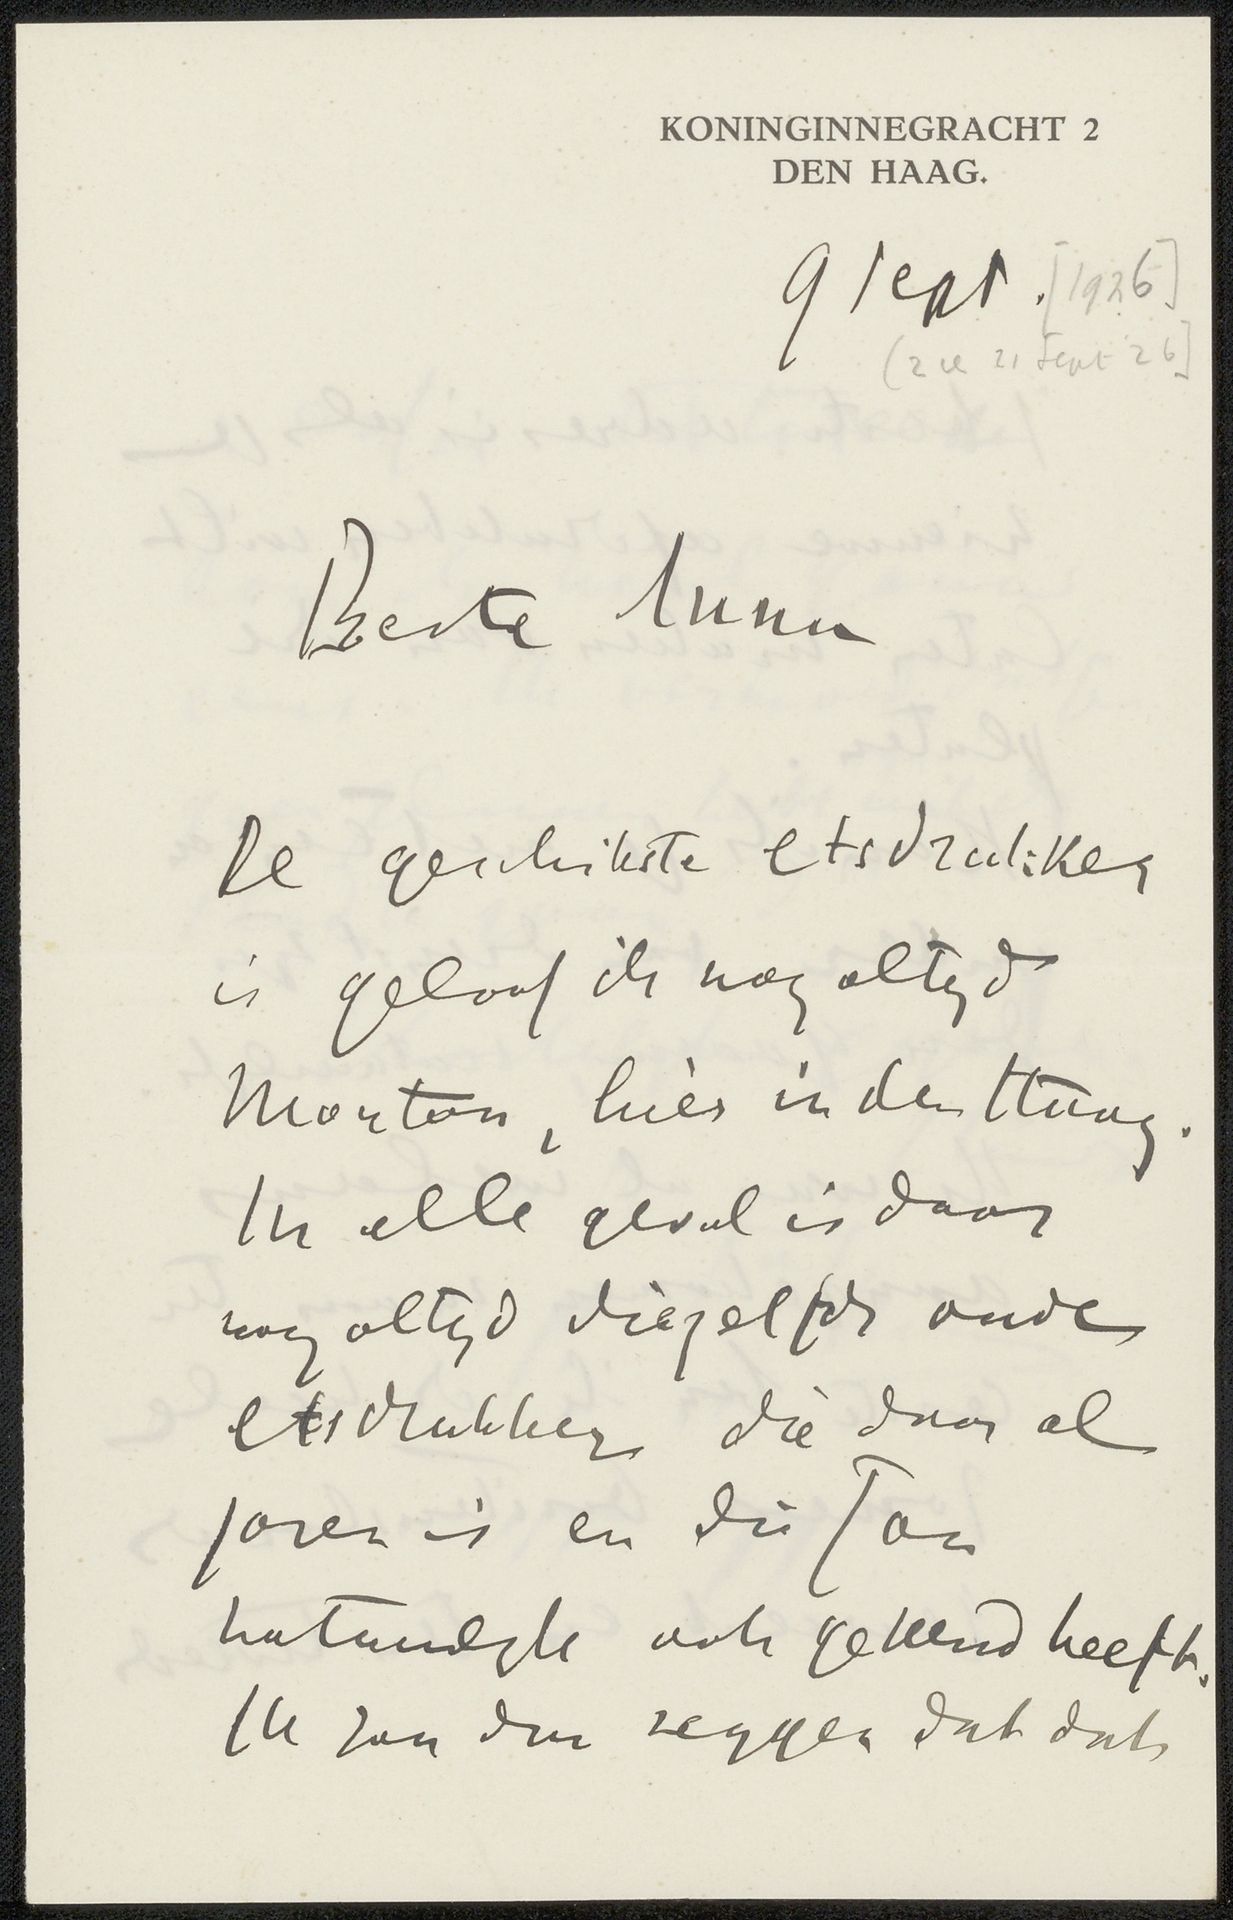 KONINGINNEGRACHT 2
DEN HAAG.
9 Sept. [1926]
(zie 21 Sept 26]
Beste Anna
De geschikste etsdrukker
is geloof ik nog altyd
Mouton, hier in den Haag.
In elle geval is daar
nog altyd diezelfde oude
etsdrukker die daar al
jaren is en die Jan
natuurlyk ook gekend heeft.
Ik zou dus zeggen dat dat